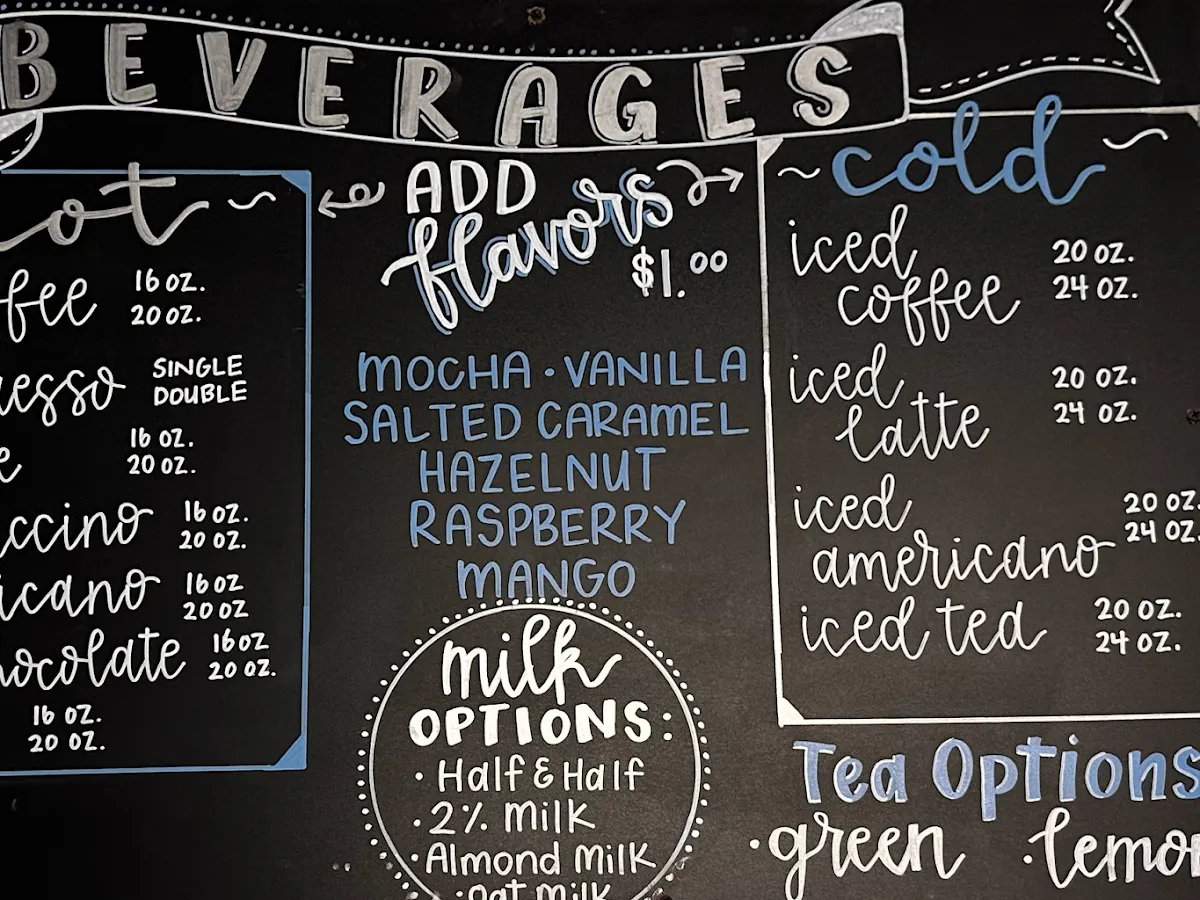 BEVERAGES
ot
ffee 16 OZ.
20 OZ.
resso SINGLE
DOUBLE
e 16 OZ.
20 OZ.
ccino 16 OZ.
20 OZ.
icano 16 OZ
20 OZ
hocolate 16 OZ
20 OZ.
16 OZ.
20 OZ.
ADD
flavors
$1.00
MOCHA · VANILLA
SALTED CARAMEL
HAZELNUT
RASPBERRY
MANGO
milk
OPTIONS:
· Half & Half
· 2% Milk
· Almond Milk
· oat milk
cold
iced 20 OZ.
coffee 24 OZ.
iced 20 OZ.
latte 24 OZ.
iced 20 OZ.
americano 24 OZ.
iced tea 20 OZ.
24 OZ.
Tea Options
· green · lemon